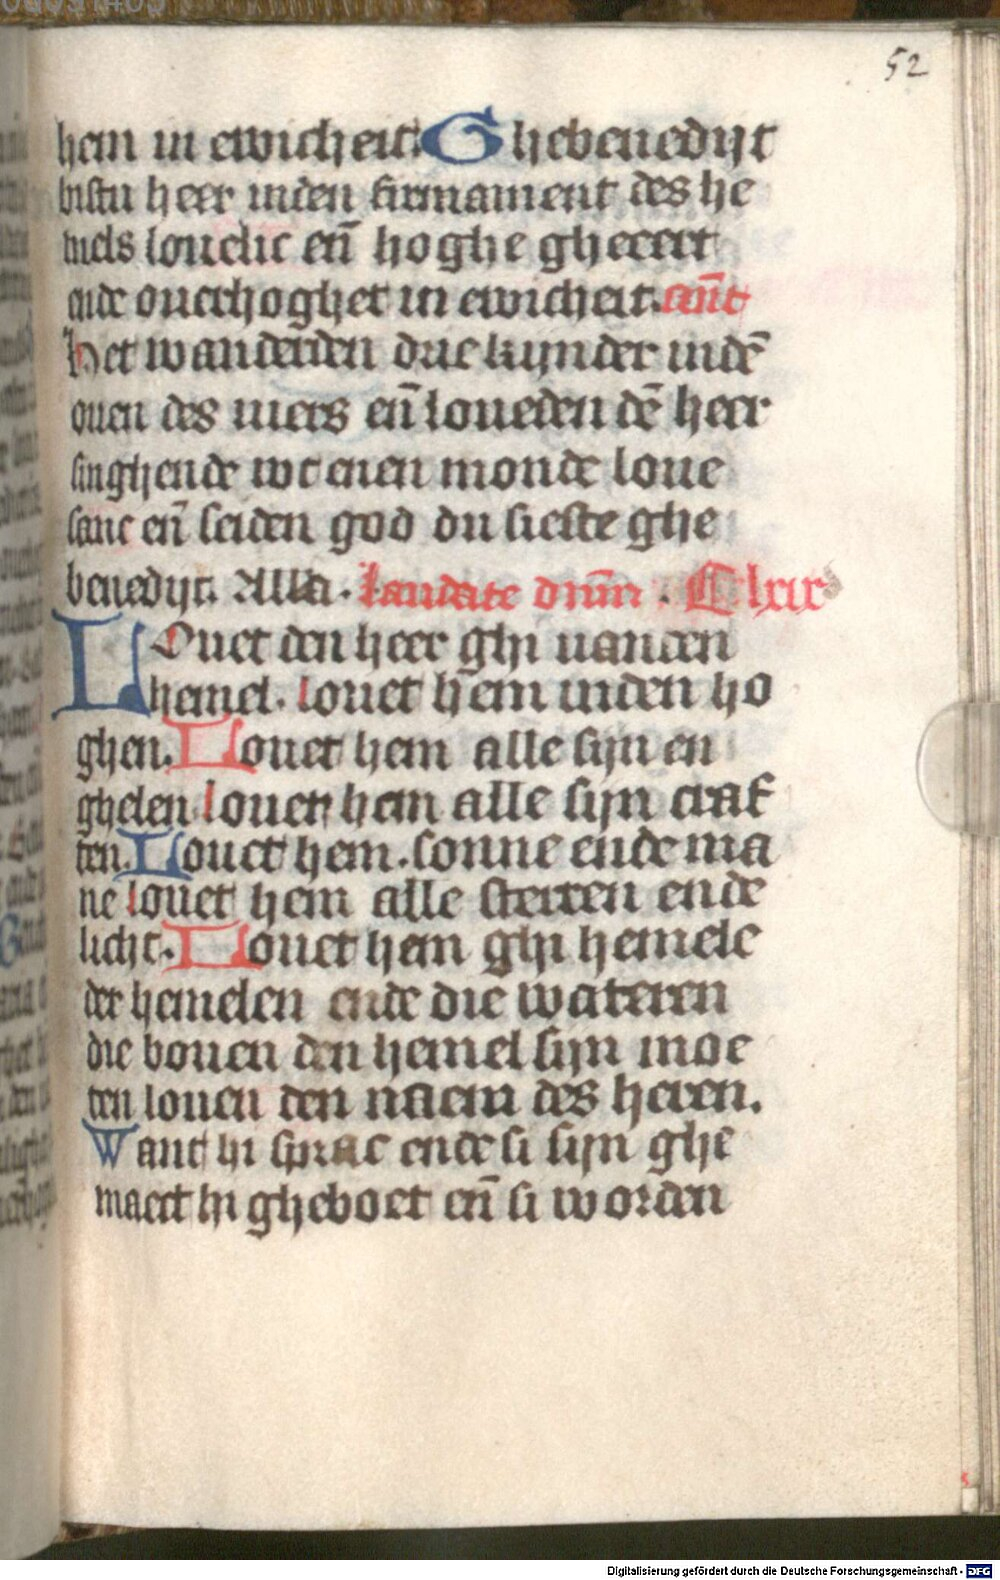 52
hem in ewicheit. Ghebenedijt
bistu heer inden firmament des he
mels louelic en̄ hoghe gheeert
ende ouerhoghet in ewicheit. an̄t
Het wanderden drie kijnder indē
ouen des viers en̄ loueden dē heer
singhende wt enen monde loue
sanc en̄ seiden god du sieste ghe
benedijt. Alla. Laudate dn̄m. Clxix
LOuet den heer ghi vanden
hemel. louet hem inden ho
ghen. Louet hem alle sijn en
ghelen louet hem alle sijn craf
ten. Louet hem. sonne ende ma
ne louet hem alle sterren ende
licht. Louet hem ghi hemele
der hemelen ende die wateren
die bouen den hemel sijn moe
ten louen den naem des heren.
Want hi sprac ende si sijn ghe
maect hi gheboet en̄ si worden
Digitalisierung gefördert durch die Deutsche Forschungsgemeinschaft - DFG